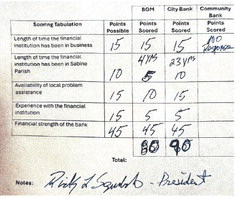 BOM City Bank Community Bank
Scoring Tabulation Points Possible Points Scored Points Scored Points Scored
Length of time the financial institution has been in business 15 15 15 No Response
Length of time the financial institution has been in Sabine Parish 10 4 yrs 5 23 yrs 10
Availability of local problem assistance 15 10 15
Experience with the financial institution 15 5 5
Financial strength of the bank 45 45 45
80 90
Total:
Notes: - President